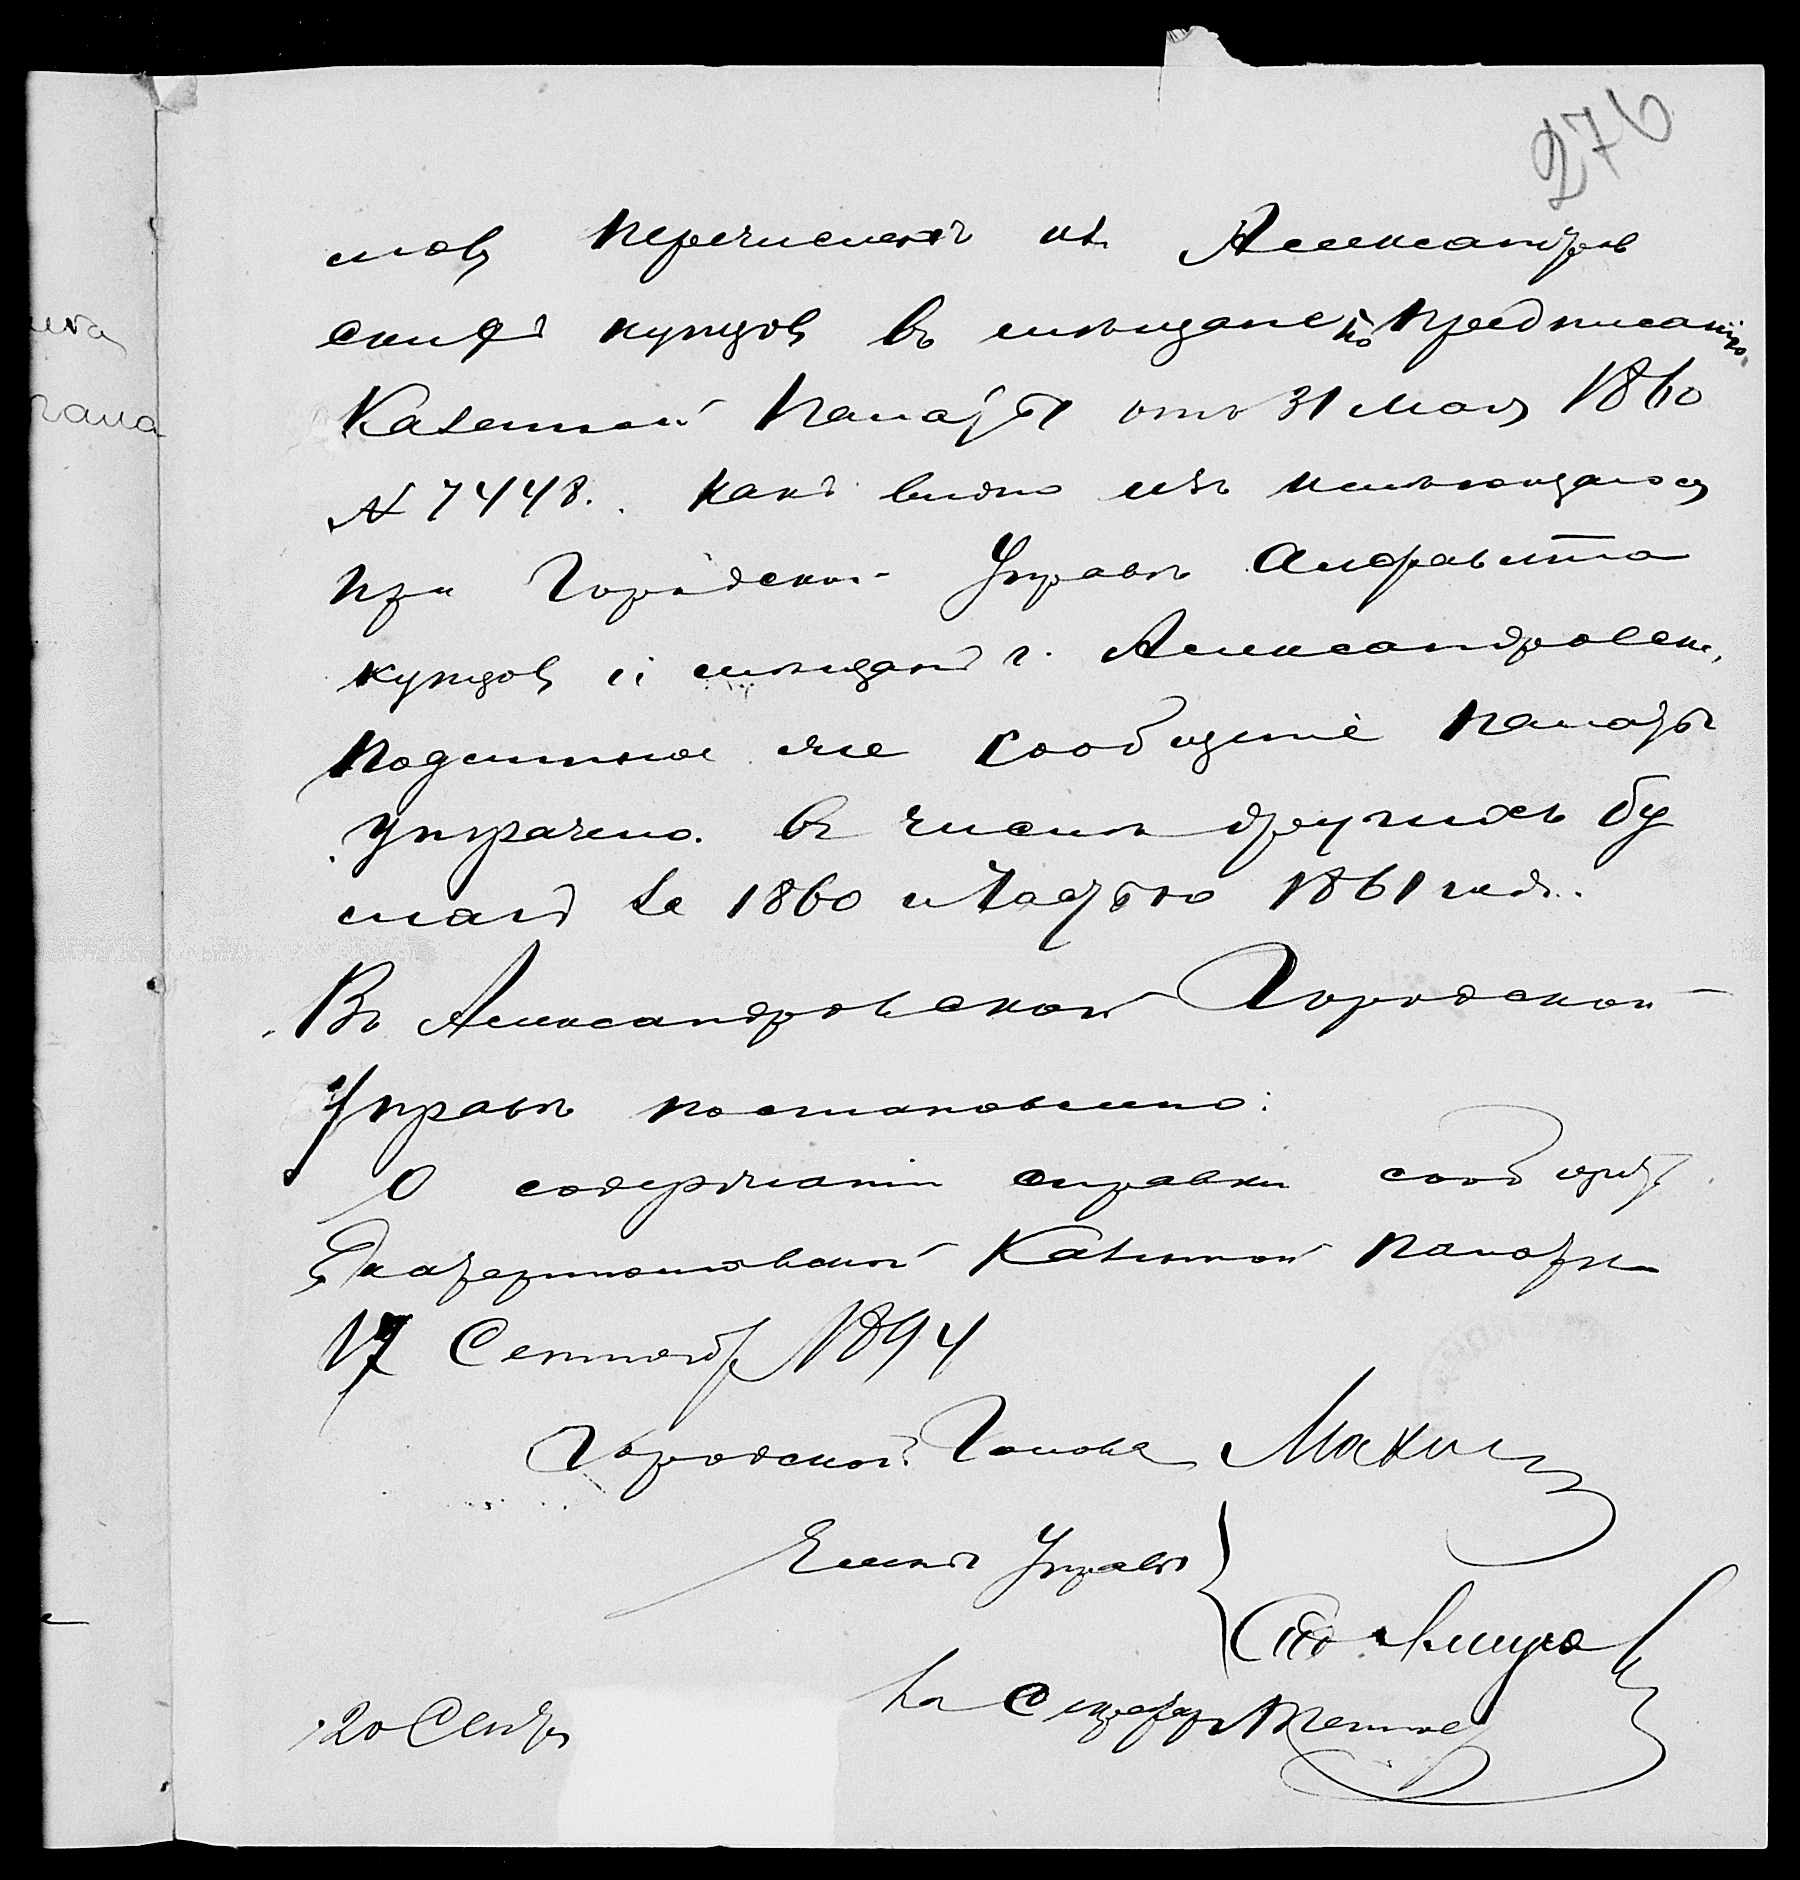 276
мовъ перечисленъ изъ Александров
скихъ купцовъ въ мѣщане по предписанію
Казенной Палаты отъ 31 Мая 1860
№ 7448. какъ видно изъ имѣющагося
при Городской Управѣ Алфавита
купцовъ и мѣщанъ г. Александровска,
подлинное же сообщеніе Палаты
утрачено въ числѣ другихъ бу
магъ за 1860 и частью 1861 годъ.
Въ Александровской Городской
Управѣ постановлено:
О содержаніи справки сообщить
Екатеринославской Казенной Палатѣ
17 Сентября 1894
Городской Голова Махинъ
Члены Управы
За Секретаря
20 Сентя